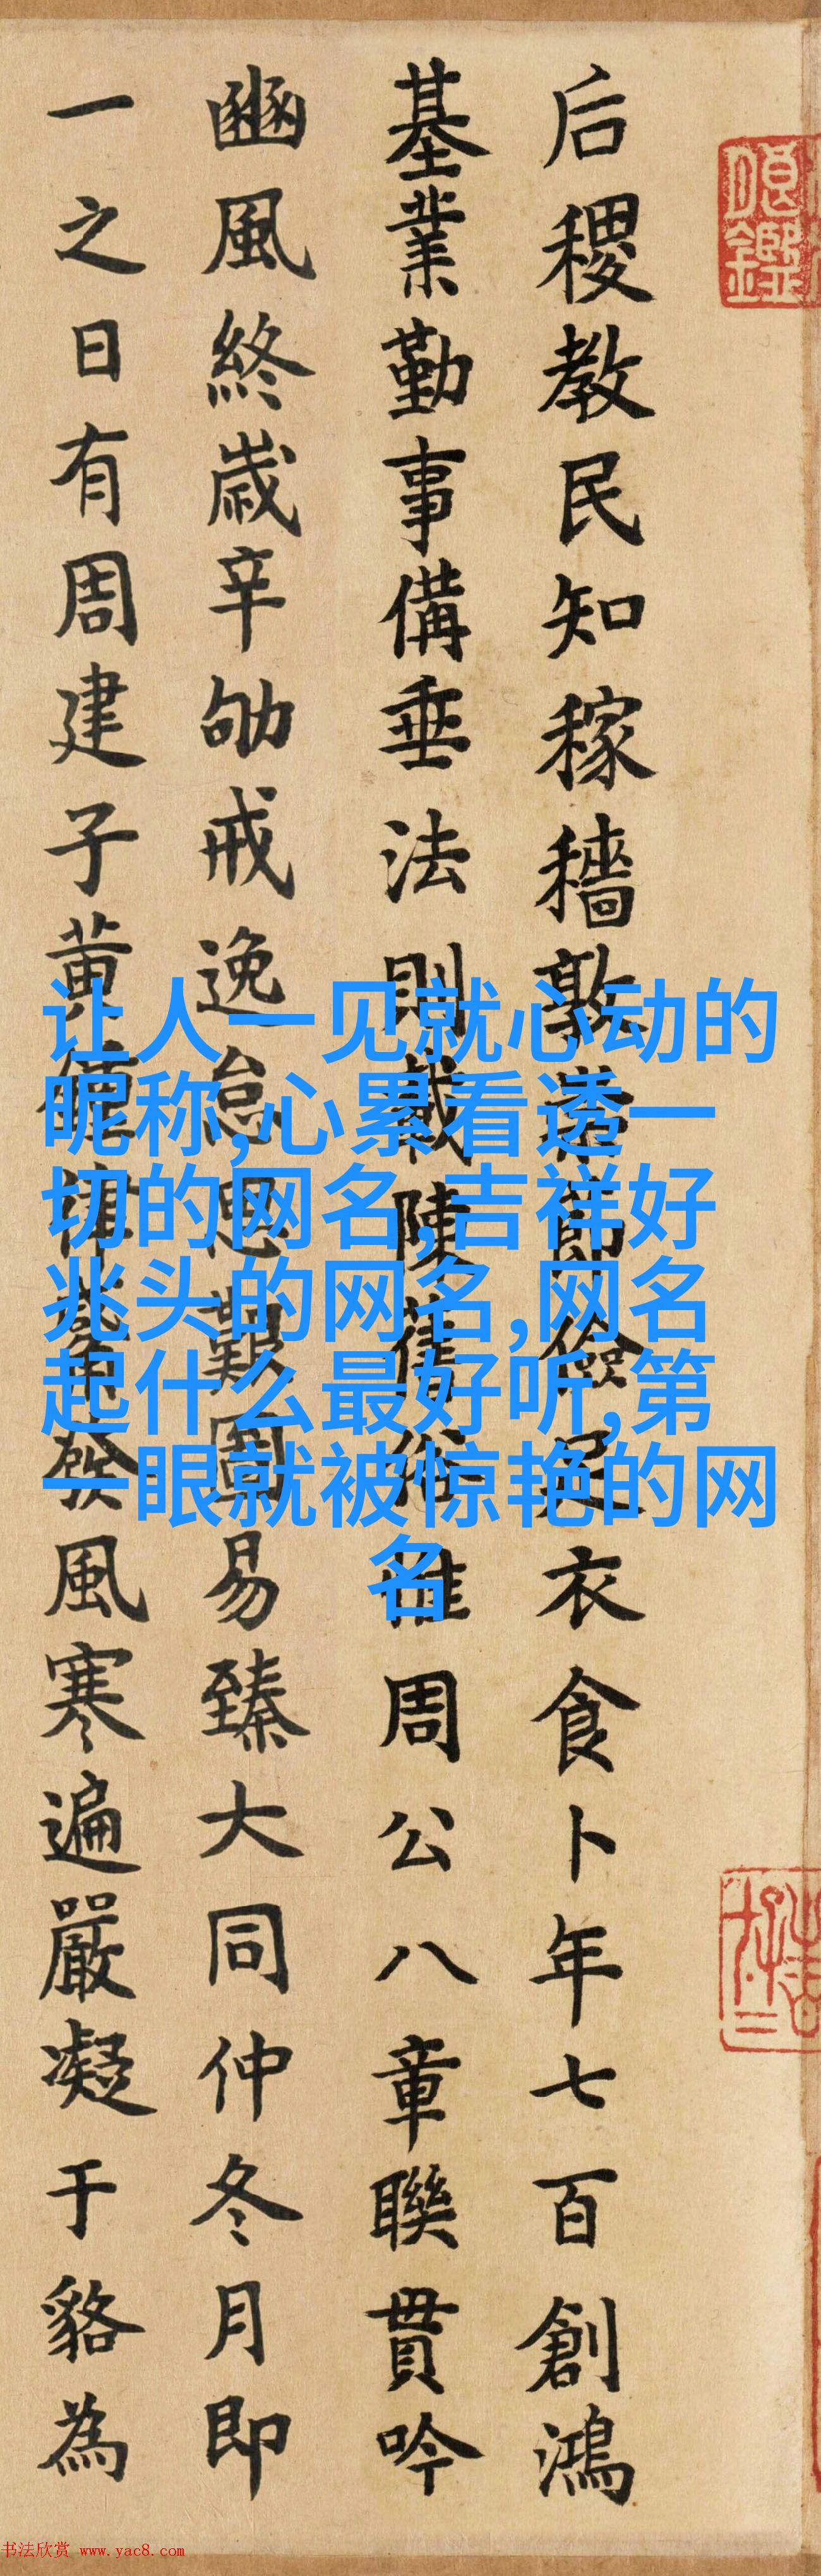 后稷教民知稼穡敦崇節儉足衣食卜年七百創鴻
基業勤事備垂法則載陳舊俗維周公八章聯貫吟
豳風終歲辛劬戒逸怠思艱圖易臻大同仲冬月即
一之日有周建子黄鍾律觱發風寒遍嚴凝于貉為
让人一见就心动的
昵称,心累看透一
切的网名,吉祥好
兆头的网名,网名
起什么最好听,第
一眼就被惊艳的网
名
书法欣赏 www.yac8.com